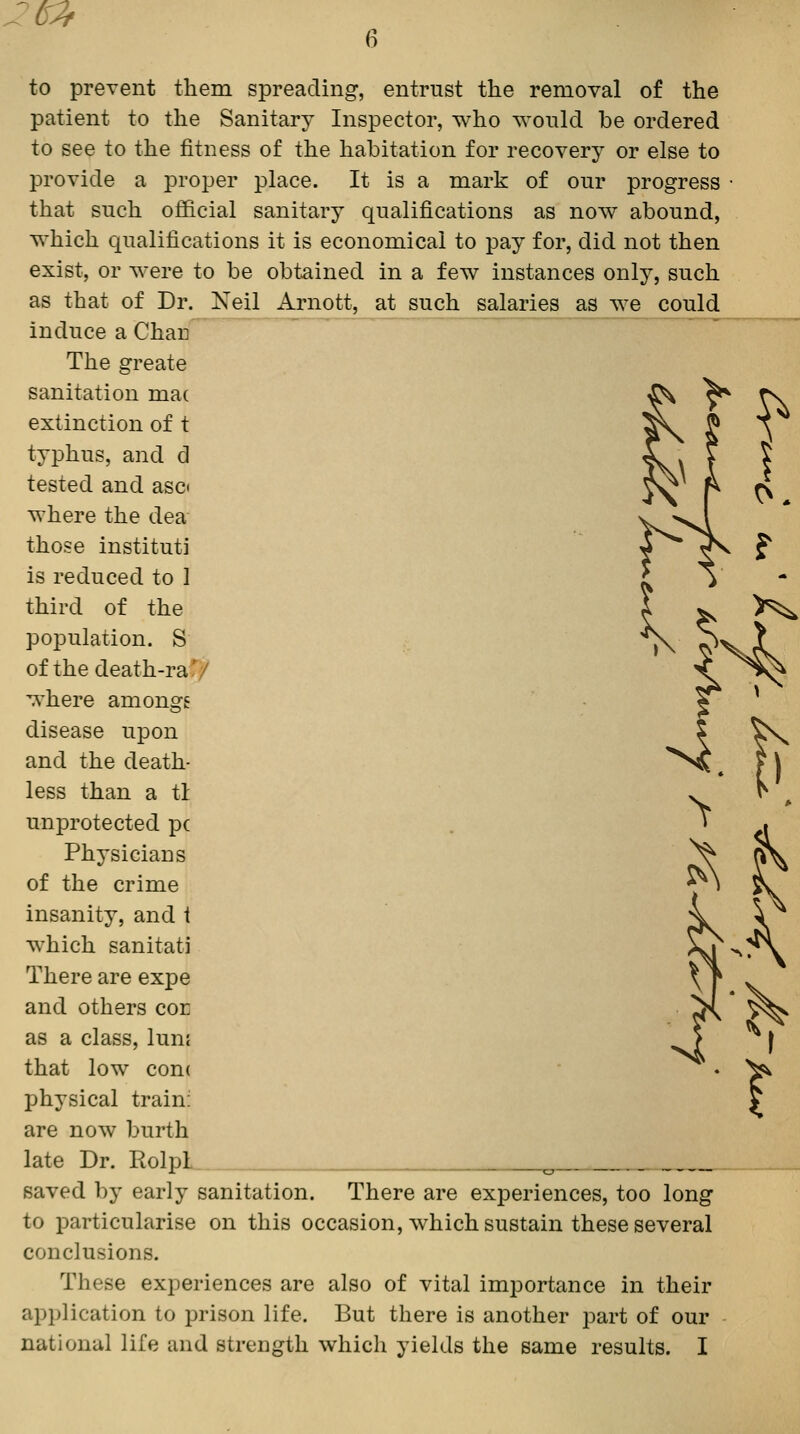 264
6
to prevent them spreading, entrust the removal of the
patient to the Sanitary Inspector, who would be ordered
to see to the fitness of the habitation for recovery or else to
provide a proper place. It is a mark of our progress
that such official sanitary qualifications as now abound,
which qualifications it is economical to pay for, did not then
exist, or were to be obtained in a few instances only, such
as that of Dr. Neil Arnott, at such salaries as we could
induce a Chan
The greate
sanitation mac
extinction of t
typhus, and d
tested and asc
where the dea
those instituti
is reduced to 1
third of the
population. S
of the death-ra
where amongs
disease upon
and the death-
less than a tl
unprotected pc
Physicians
of the crime
insanity, and t
which sanitati
There are expe
and others con
as a class, luna
that low com
physical train
are now burth
late Dr. Rolph
saved by early sanitation. There are experiences, too long
to particularise on this occasion, which sustain these several
conclusions.
These experiences are also of vital importance in their
application to prison life. But there is another part of our
national life and strength which yields the same results. I
half-time
for